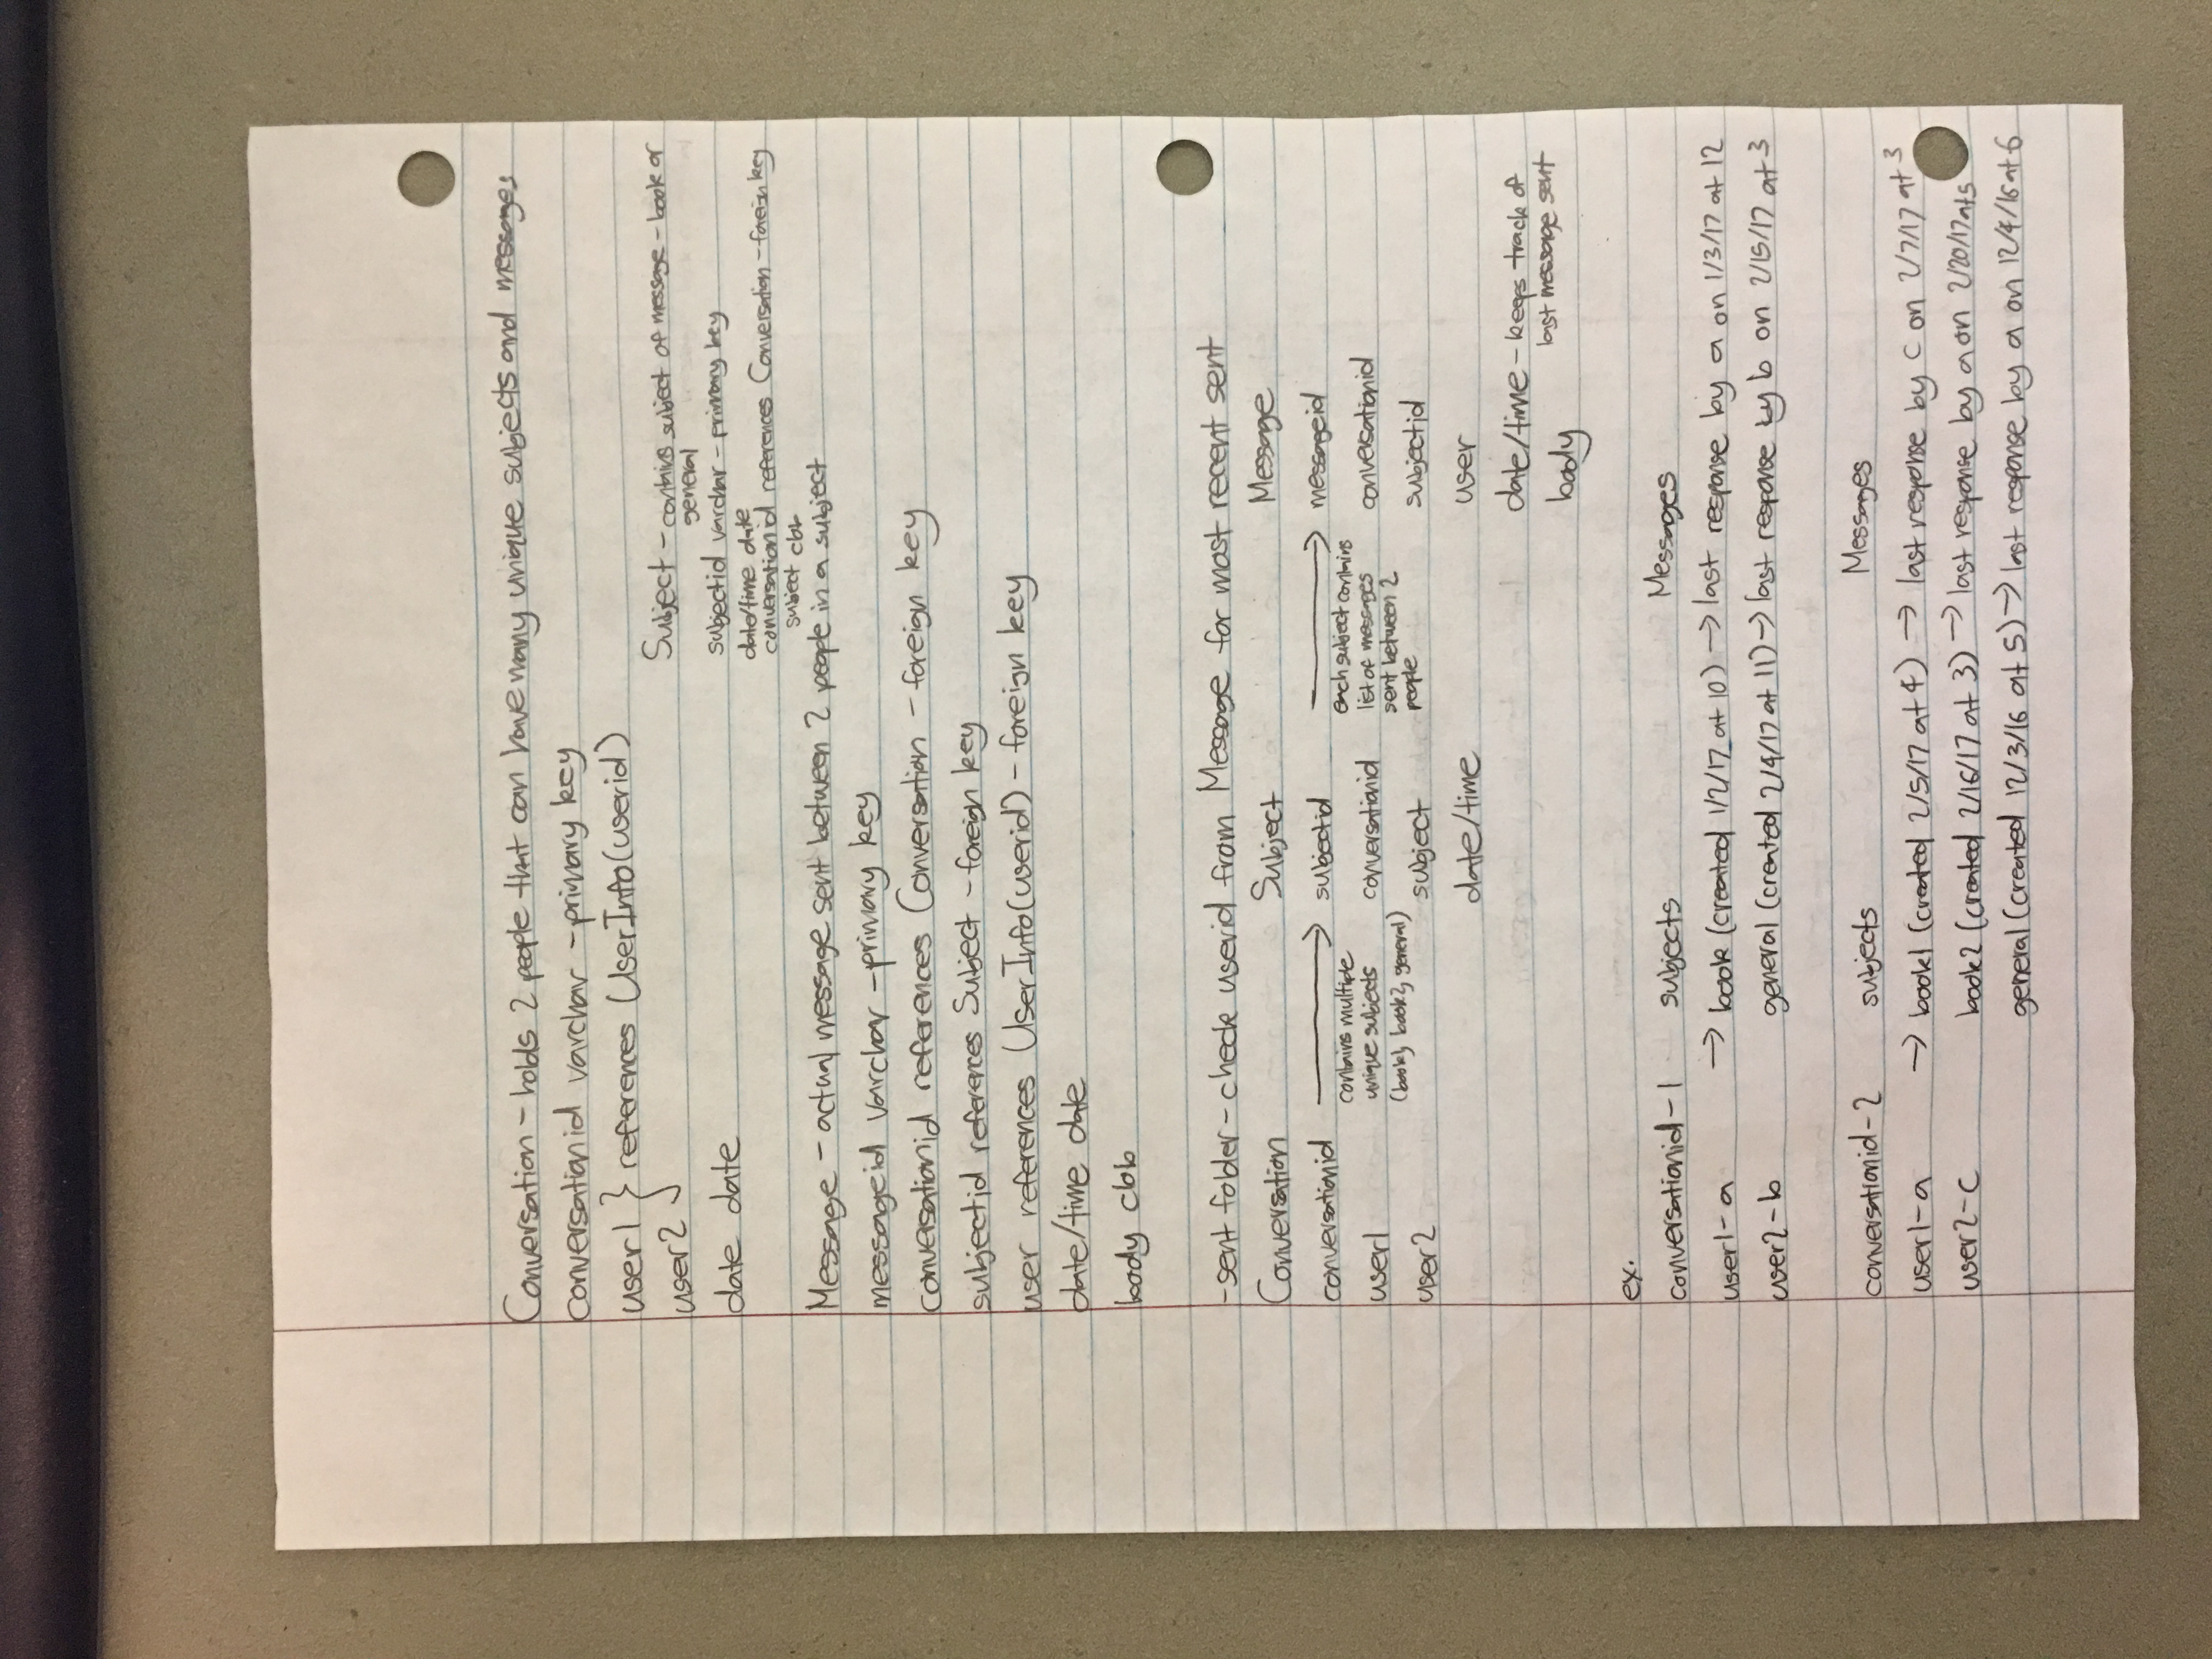 Conversation - holds 2 people that can have many unique subjects and messages
conversationid varchar - primary key
user1 } references UserInfo(userid)
user2
date date
Subject - contains subject of message - book or
general
subjectid varchar - primary key
date/time date
conversationid references Conversation - foreign key
subject clob
Message - actual message sent between 2 people in a subject
messageid varchar - primary key
conversationid references Conversation - foreign key
subjectid references Subject - foreign key
user references UserInfo(userid) - foreign key
date/time date
body clob
- sent folder - check userid from Message for most recent sent
Conversation Subject Message
conversationid → subjectid → messageid
contains multiple
unique subjects
(book1, book2, general)
each subject contains
list of messages
sent between 2
people
user1 conversationid conversationid
user2 subject subjectid
date/time user
date/time - keeps track of
last message sent
body
ex.
conversationid-1 subjects Messages
user1-a → book (created 1/2/17 at 10) → last response by a on 1/3/17 at 12
user2-b general (created 2/4/17 at 11) → last response by b on 2/15/17 at 3
conversationid-2 subjects Messages
user1-a → book1 (created 2/5/17 at 4) → last response by c on 2/7/17 at 3
user2-c book2 (created 2/16/17 at 3) → last response by a on 2/20/17 at 5
general (created 12/3/16 at 5) → last response by a on 12/4/16 at 6